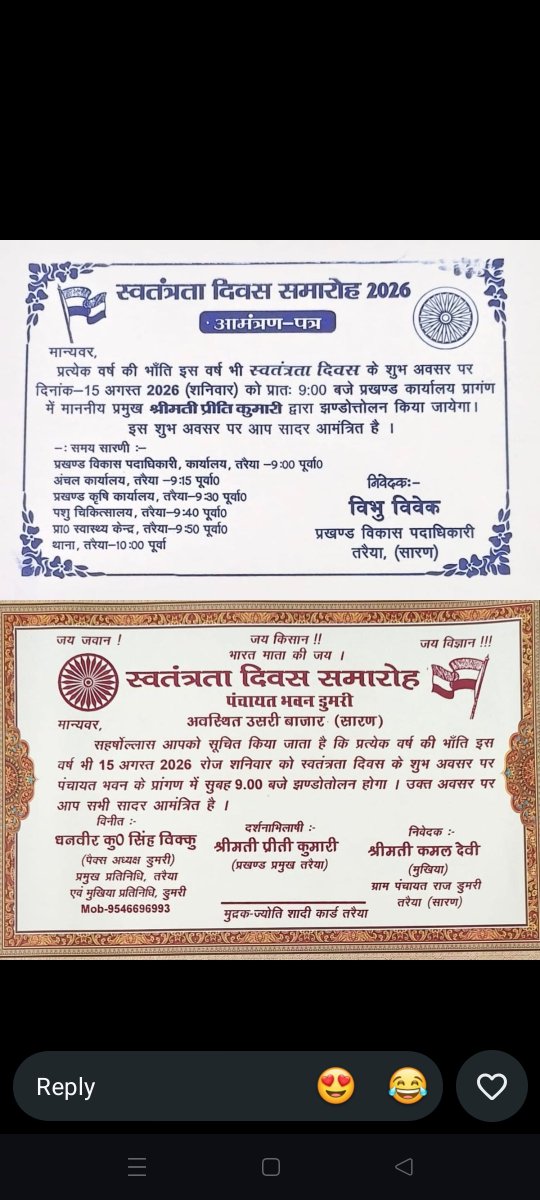 स्वतंत्रता दिवस समारोह 2026
आमंत्रण-पत्र
मान्यवर,
प्रत्येक वर्ष की भाँति इस वर्ष भी स्वतंत्रता दिवस के शुभ अवसर पर
दिनांक–15 अगस्त 2026 (शनिवार) को प्रातः 9:00 बजे प्रखण्ड कार्यालय प्रागंण
में माननीय प्रमुख श्रीमती प्रीति कुमारी द्वारा झण्डोत्तोलन किया जायेगा।
इस शुभ अवसर पर आप सादर आमंत्रित है ।
–: समय सारणी :–
प्रखण्ड विकास पदाधिकारी, कार्यालय, तरैया –9:00 पूर्वा0
अंचल कार्यालय, तरैया –9:15 पूर्वा0
प्रखण्ड कृषि कार्यालय, तरैया–9:30 पूर्वा0
पशु चिकित्सालय, तरैया–9:40 पूर्वा0
प्रा0 स्वास्थ्य केन्द्र, तरैया–9:50 पूर्वा0
थाना, तरैया–10:00 पूर्वा
निवेदकः–
विभु विवेक
प्रखण्ड विकास पदाधिकारी
तरैया, (सारण)
जय जवान ! जय किसान !! जय विज्ञान !!!
भारत माता की जय ।
स्वतंत्रता दिवस समारोह
पंचायत भवन डुमरी
मान्यवर, अवस्थित उसरी बाजार (सारण)
सहर्षोल्लास आपको सूचित किया जाता है कि प्रत्येक वर्ष की भाँति इस
वर्ष भी 15 अगस्त 2026 रोज शनिवार को स्वतंत्रता दिवस के शुभ अवसर पर
पंचायत भवन के प्रांगण में सुबह 9.00 बजे झण्डोतोलन होगा । उक्त अवसर पर
आप सभी सादर आमंत्रित है ।
विनीत :-
धनवीर कु0 सिंह विक्कु
(पैक्स अध्यक्ष डुमरी)
प्रमुख प्रतिनिधि, तरैया
एवं मुखिया प्रतिनिधि, डुमरी
Mob-9546696993
दर्शनाभिलाषी :-
श्रीमती प्रीती कुमारी
(प्रखण्ड प्रमुख तरैया)
निवेदक :-
श्रीमती कमल देवी
(मुखिया)
ग्राम पंचायत राज डुमरी
तरैया (सारण)
मुद्रक-ज्योति शादी कार्ड तरैया
Reply